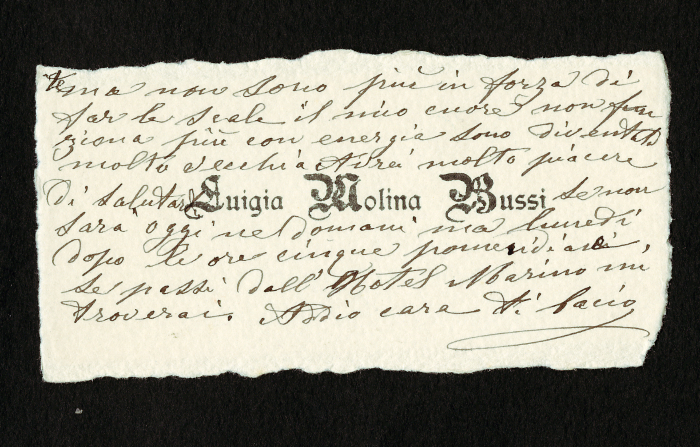 te ma non sono più in forza di
far le scale il mio cuore non fun
ziona più con energia sono diventata
molto vecchia Avrei molto piacere
di salutarti Luigia Molina Bussi se non
sarà oggi ne domani ma lunedì
dopo le ore cinque pomeridiane,
se passi dall' Hotel Marino mi
troverai. Addio cara ti bacio